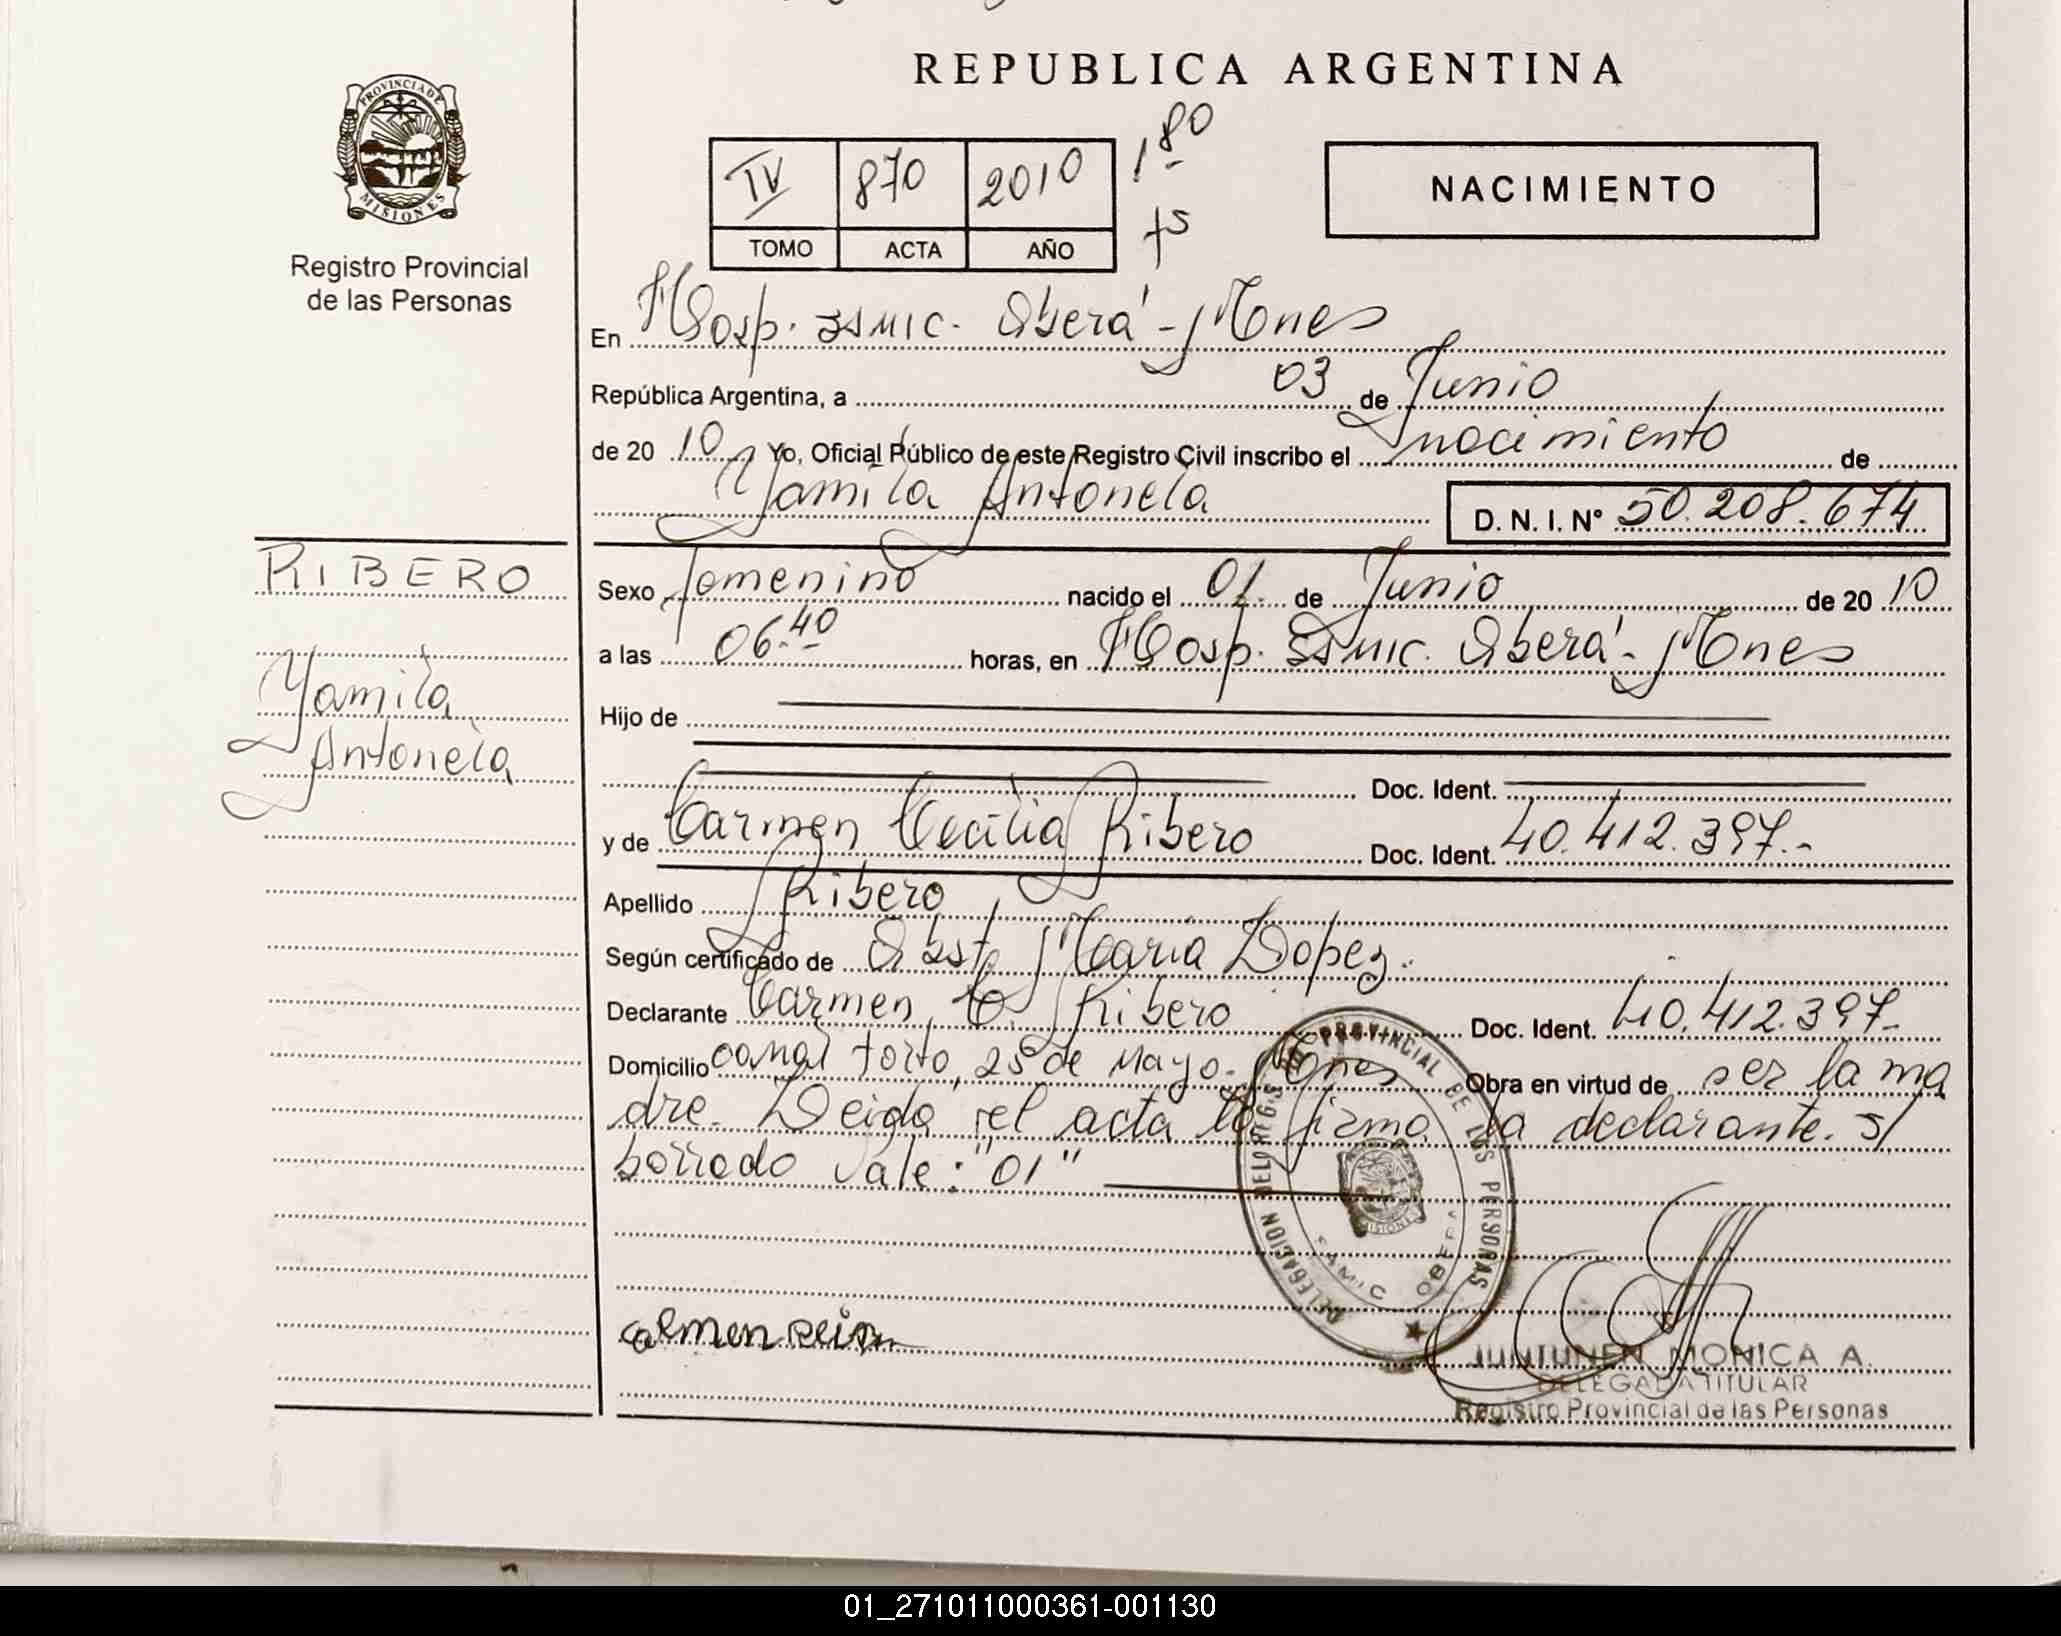 REPUBLICA ARGENTINA
PROVINCIA DE
MISIONES
Registro Provincial
de las Personas
IV 870 2010
TOMO ACTA AÑO
1 80
fs
NACIMIENTO
En Hosp. SAMIC. Oberá - Mnes
República Argentina, a 03 de Junio
de 20 10 Yo, Oficial Público de este Registro Civil inscribo el nacimiento de
Yamila Antonela D. N. I. Nº 50.208.674
RIBERO
Yamila
Antonela
Sexo femenino nacido el 01. de Junio de 20 10
a las 06.40 horas, en Hosp. SAMIC. Oberá - Mnes
Hijo de
Doc. Ident.
y de Carmen Cecilia Ribero Doc. Ident. 40.412.397.-
Apellido Ribero
Según certificado de Obst. Maria Lopez.
Declarante Carmen C. Ribero Doc. Ident. 40.412.397.-
Domicilio canal torto, 25 de Mayo. Mnes Obra en virtud de ser la ma
dre. Leida el acta la firma la declarante. s/
borrado Vale: "01"
DELEGACION DEL REGIS PROVINCIAL DE LAS PERSONAS
SAMIC OBERA
MISIONES
carmen
MONICA A.
DELEGADA TITULAR
Registro Provincial de las Personas
01_271011000361-001130